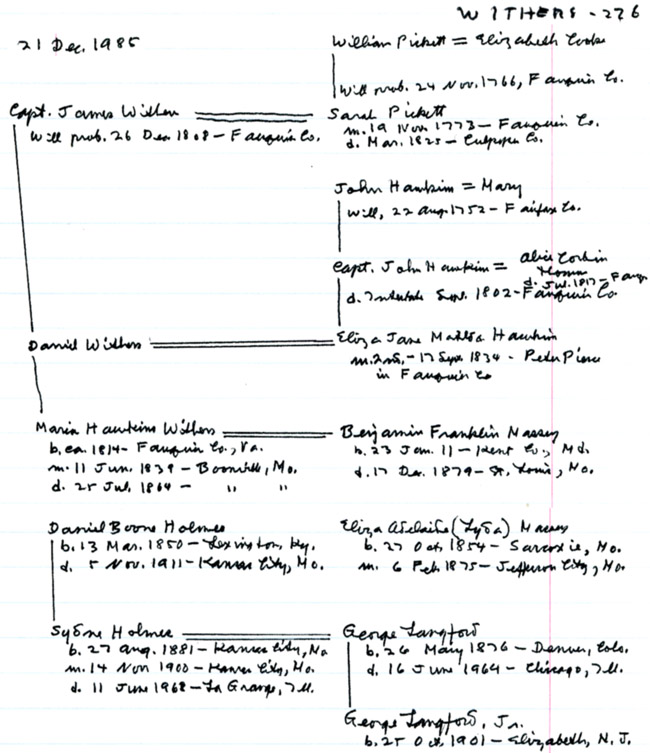 WITHERS - 276
21 Dec. 1985
William Pickett = Elizabeth Cooke
Will prob. 24 Nov. 1766, Fauquier Co.
Capt. James Withers
Will prob. 26 Dec 1808 - Fauquier Co.
Sarah Pickett
m. 19 Nov. 1773 - Fauquier Co.
d. Mar. 1825 - Culpeper Co.
John Hawkins = Mary
Will, 22 Aug. 1752 - Fairfax Co.
Capt. John Hawkins = Alice Corbin
d. Jul. 1817 - Fauq
d. Intestate Sept. 1802 - Fauquier Co
Daniel Withers
Eliza Jane Hawkins
m. 2nd. - 17 Sept. 1834 - Peter Pierce
in Fauquier Co
Maria Hawkins Withers
b. ca. 1814 - Fauquier Co., Va.
m. 11 Jun. 1839 - Boonville, Mo.
d. 25 Jul. 1864 - " "
Benjamin Franklin Massey
b. 23 Jan. 11 - Kent Co., Md.
d. 17 Dec. 1879 - St. Louis, Mo.
Daniel Boone Holmes
b. 13 Mar. 1850 - Lexington, Ky.
d. 5 Nov. 1911 - Kansas City, Mo.
Eliza Adelaide (Lyda) Massey
b. 27 Oct. 1854 - Sarcoxie, Mo.
m. 6 Feb. 1875 - Jefferson City, Mo.
Sydne Holmes
b. 27 Aug. 1881 - Kansas City, Mo
m. 14 Nov 1900 - Kansas City, Mo.
d. 11 June 1968 - La Grange, Ill.
George Langford
b. 26 May 1876 - Denver, Colo.
d. 16 June 1964 - Chicago, Ill.
George Langford, Jr.
b. 25 Oct. 1901 - Elizabeth, N.J.